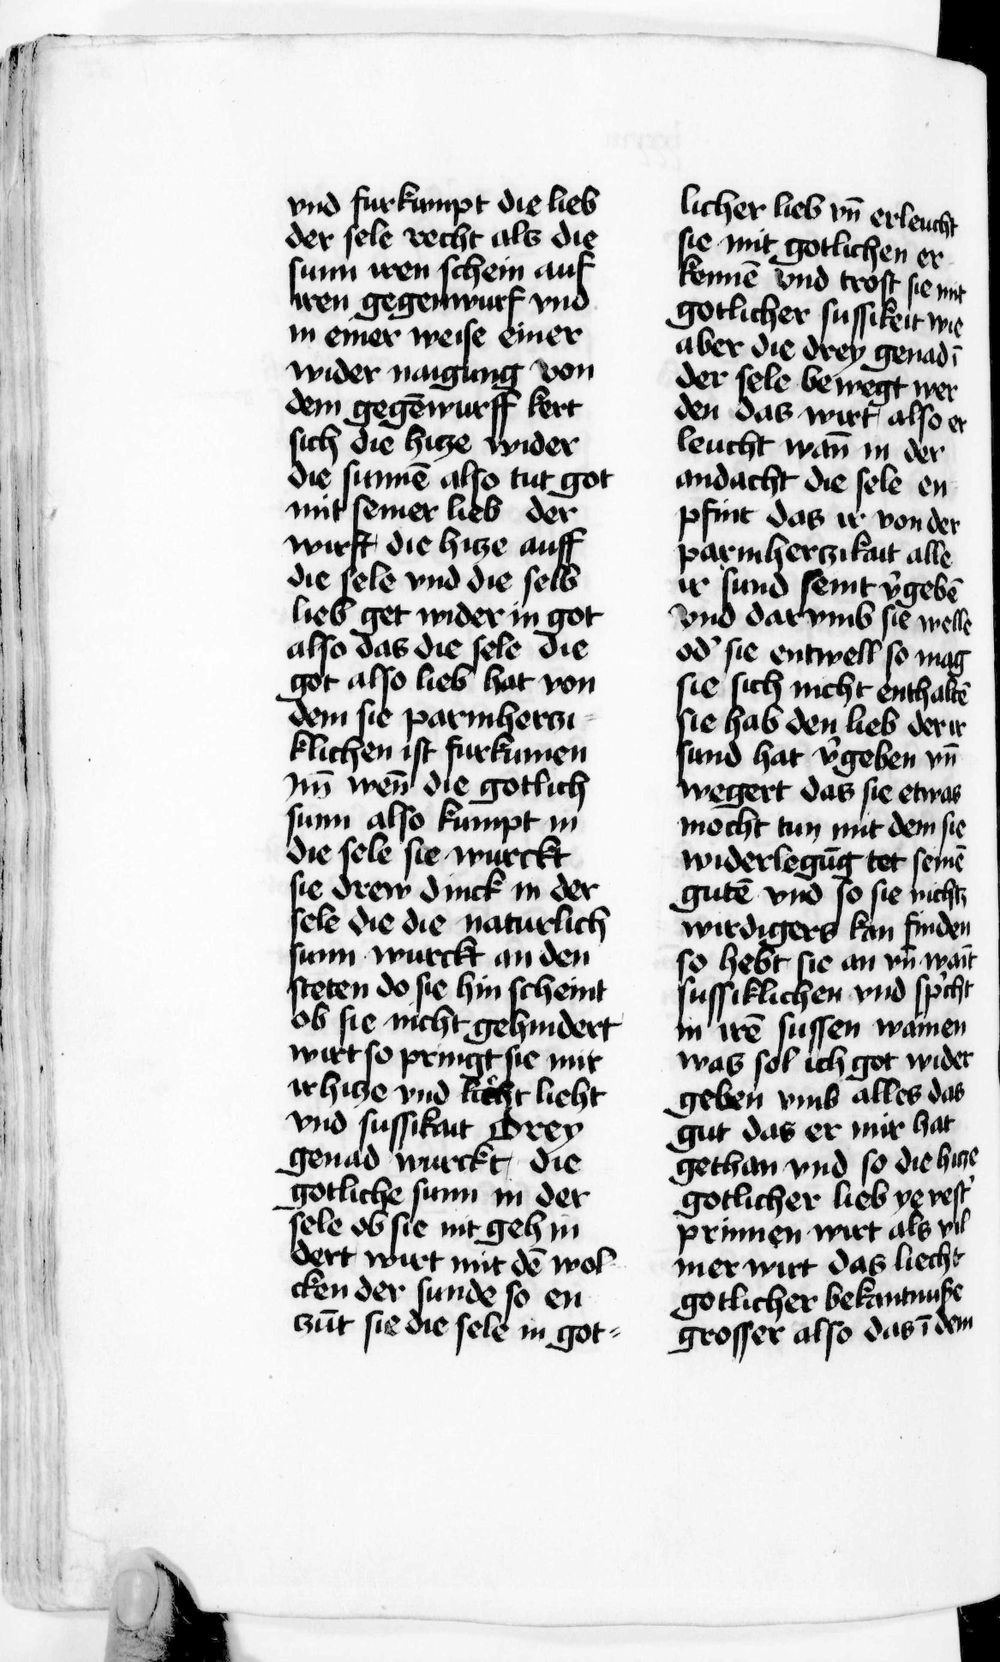 vnd furkumpt die lieb
der sele recht als die
sunn iren schein auf
iren gegenwurf vnd
in einer weise einer
wider naigung von
dem gegēwurff kert
sich die hitze wider
die sunnē also tut got
mit seiner lieb der
wirft die hitze auff
die sele vnd die selb
lieb get wider in got
also das die sele die
got also lieb hat von
dem sie parmhertzi=
klichen ist furkumen
Nū wen̄ die gotlich
sunn also kumpt in
die sele sie wurckt
sie drew dinck in der
sele die die naturlich
sunn wurckt an den
steten do sie hin scheint
ob sie nicht gehindert
wirt so pringt sie mit
ir hitze vnd licht
vnd sussikait Drey
genad wurckt die
gotliche sunn in der
sele ob sie nit gehin
dert wirt mit dē wol
cken der sunde so en
zūt sie die sele in got=
licher lieb vn̄ erleucht
sie mit gotlichen er
kennē vnd trost sie mit
gotlicher sussikeit wie
aber die drey genad ī
der sele bewegt wer
den das wirt also er
leucht wan̄ in der
andacht die sele en
pfint das ir von der
parmhertzikait alle
ir sund seint v̓gebē
vnd darumb sie welle
od̓ sie entwell so mag
sie sich nicht enthaltē
sie hab den lieb der ir
sund hat v̓geben vn̄
wegert das sie etwas
mocht tun mit dem sie
widerlegūg tet seinē
gutē vnd so sie nichtz
wirdigers kan finden
so hebt sie an vn̄ waīt
sussiklichen vnd sp̓cht
in irē sussen wainen
was sol ich got wider
geben vmb alles das
gut das er mir hat
gethan vnd so die hitze
gotlicher lieb ye vest̓
prinnen wirt als vil
mer wirt das liecht
gotlicher bekantnuße
grosser also das ī dem